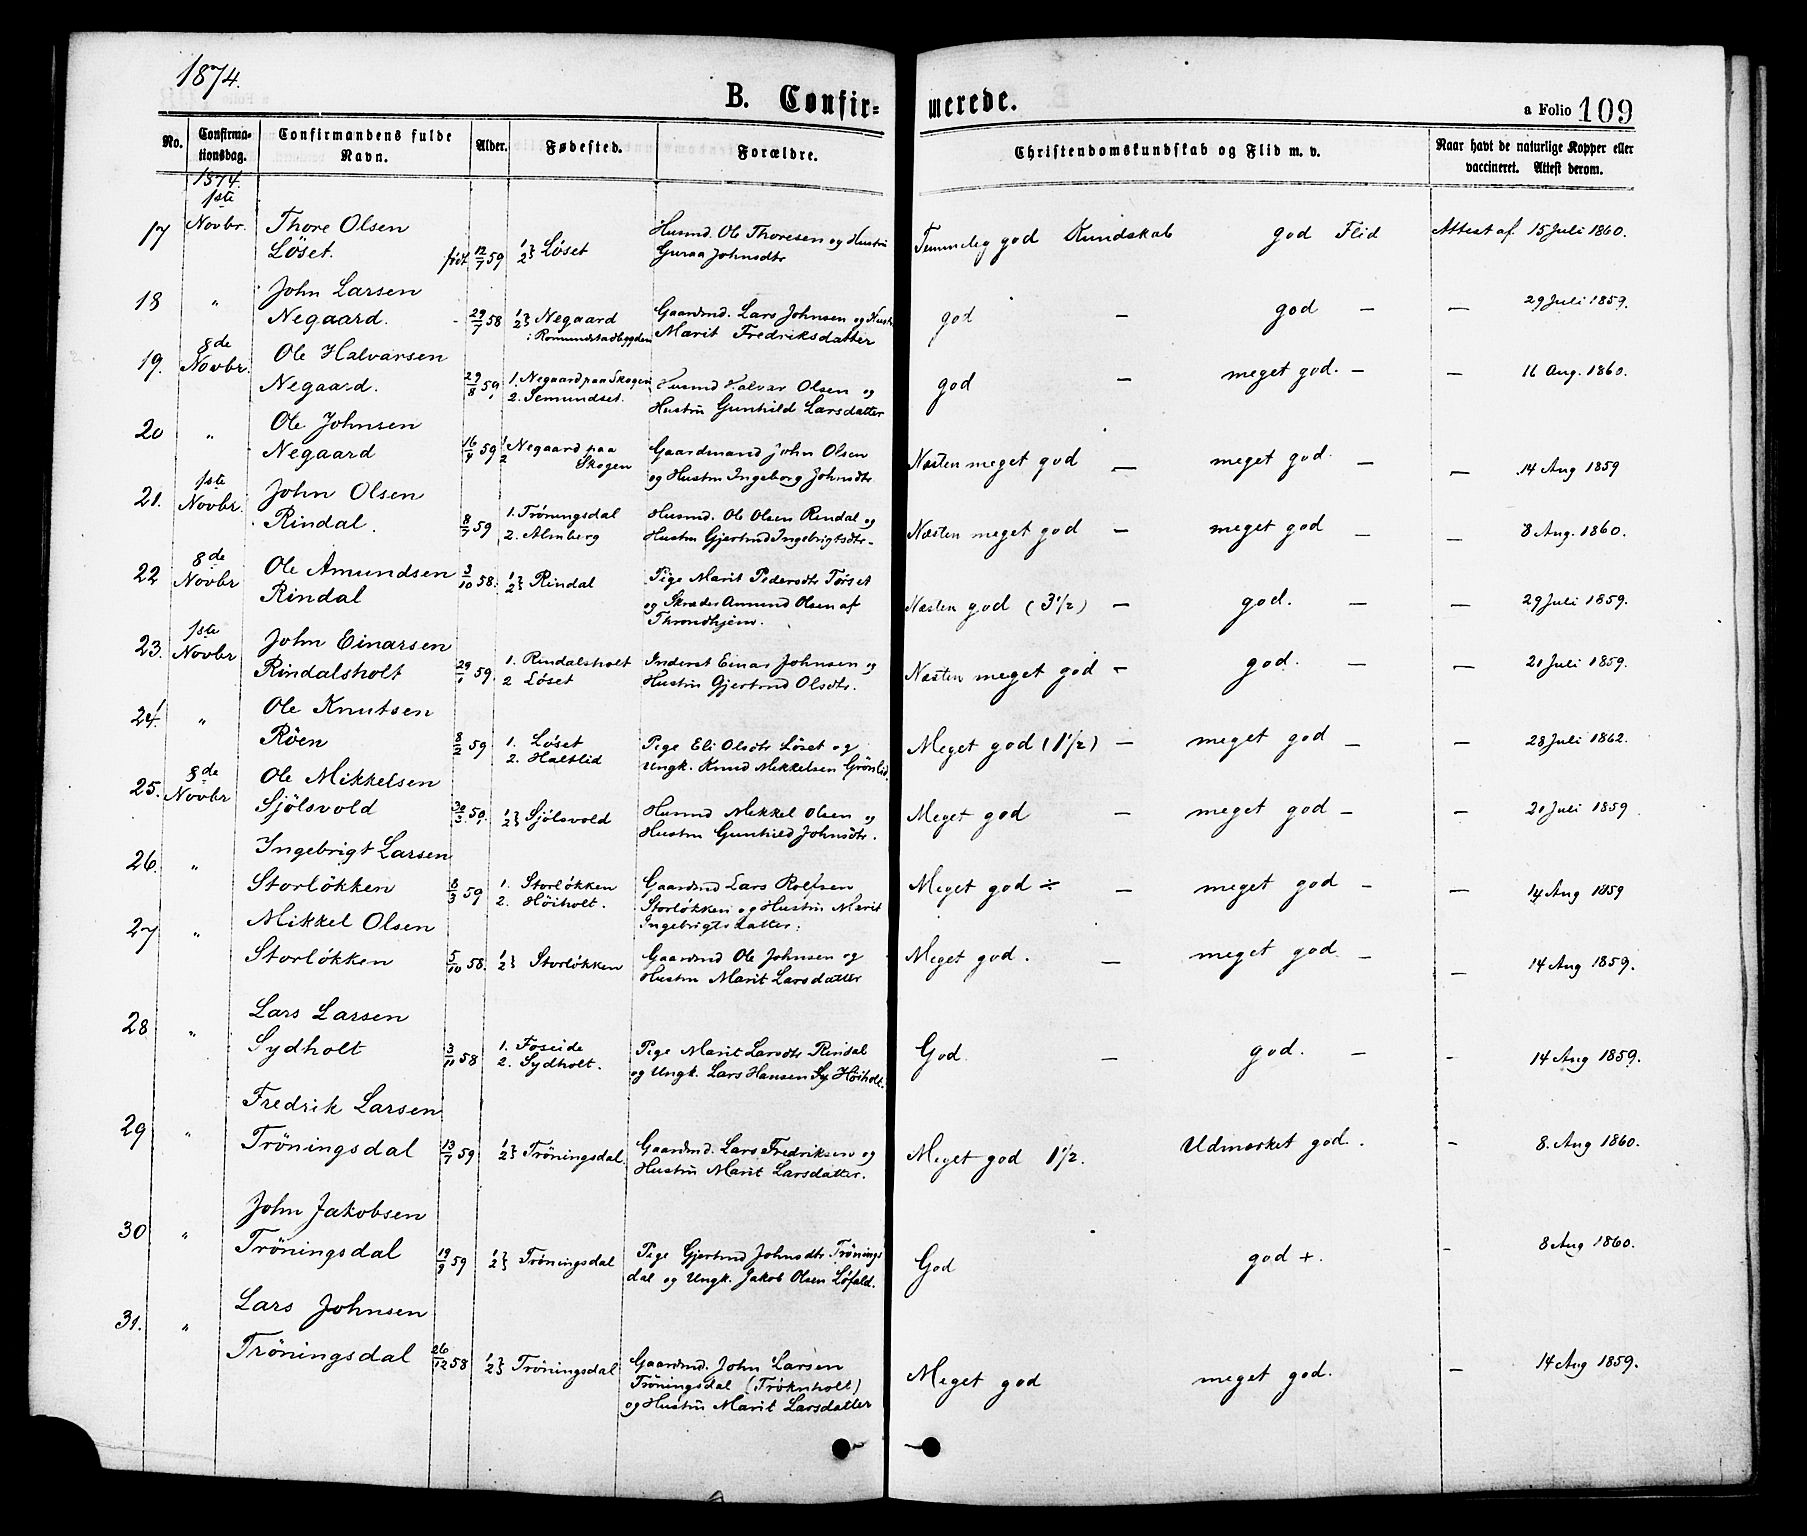 1874.
B. Confir-
merede.
a Folio 109
No.
Confirma-
tionsdag.
Confirmandens fulde
Navn.
Alder.
Fødested.
Forældre.
Christendomskundskab og Flid m. v.
Naar havt de naturlige Kopper eller
vaccineret. Attest derom.
1874.
1ste
17 Novbr. Thore Olsen
Löset. født 12/7 59 1 2} Löset
Husmd. Ole Thoresen og Hustru
Guraa Johnsdtr
Temmelig god Kundskab god Flid Attest af 15 Juli 1860.
18 " John Larsen
Negaard. 29/7 58 1 2} Negaard
: Romundstadbygden
Gaardmd. Lars Johnsen og Hustr
Marit Fredriksdatter
god — god — — 29 Juli 1859.
19. 8de
Novbr. Ole Halvarsen
Negaard. 29/8 59 1. Negaard paa Skogen
2. Semundset.
Husmd Halvar Olsen og
Hustru Gunhild Larsdatter
god — meget god. — — 16 Aug. 1860.
20 " Ole Johnsen
Negaard 59 1 2 Negaard paa
Skogen
Gaardmand John Olsen
og Hustru Ingeborg Johnsdtr
Næsten meget god — meget god. — — 14 Aug 1859
21. 1ste
Novbr. John Olsen
Rindal. 8/7 59 1. Tröningsdal
2. Almberg
Husmd. Ole Olsen Rindal og
Hustru Gjertrud Ingebrigtsdtr.
Næsten meget god — meget god — — 8 Aug. 1860.
22 8de
Novbr Ole Amundsen
Rindal 3/10 58. 1 2} Rindal
Pige Marit Pedersdtr Torset
og Skræder Amund Olsen af
Throndhjem.
Næsten god (3 1/2) — god. — — 29 Juli 1859.
23. 1ste
Novbr John Einarsen
Rindalsholt 29/1 59. 1. Rindalsholt
2 Löset
Inderst Einar Johnsen og
Hustru Gjertrud Olsdtr.
Næsten meget god — god. — — 21 Juli 1859.
24. " Ole Knutsen
Röen 8/2 59 1. Löset
2. Haltlid
Pige Eli Olsdtr Löset og
Ungk. Knud Mikkelsen Grönlid.
Meget god (1 1/2) — meget god — — 28 Juli 1862.
25. 8de
Novbr Ole Mikkelsen
Sjölsvold 59. 1 2} Sjölsvold
Husmd Mikkel Olsen og
Hustru Gunhild Johnsdtr.
Meget god — meget god — — 21 Juli 1859
26. " Ingebrigt Larsen
Storlökken 8/3 59 1. Storlökken
2. Höiholt.
Gaardmd Lars Rolfsen
Storlökken og Hustru Marit
Ingebrigtsdatter.
Meget god ÷ — meget god — — 14 Aug 1859
27 " Mikkel Olsen
Storlökken 5/10 58. 1 2} Storlökken
Gaardmd Ole Johnsen og
Hustru Marit Larsdatter
Meget god. — meget god — — 14 Aug 1859.
28 " Lars Larsen
Sydholt 3/11 58 1. Foseide
2. Sydholt.
Pige Marit Larsdtr Rindal
og Ungk. Lars Hansen Höiholt.
God — god. — — 14 Aug 1859.
29 " Fredrik Larsen
Tröningsdal 13/7 59 1 2} Tröningsdal.
Gaardmd. Lars Fredriksen og
Hustru Marit Larsdatter.
Meget god 1 1/2. Udmærket god. — 8. Aug 1860.
30 " John Jakobsen
Tröningsdal 19/9 59 1 2} Tröningsdal
Pige Gjertrud Johnsdtr Trönings
dal og Ungk. Jakob Olsen Löfald.
God god +. — 8 Aug 1860.
31. " Lars Johnsen
Tröningsdal 26/12 58 1 2} Tröningsdal
Gaardmd. John Larsen
Tröningsdal (Tröknholt)
og Hustru Marit Larsdatter
Meget god meget god. — 14 Aug 1859.